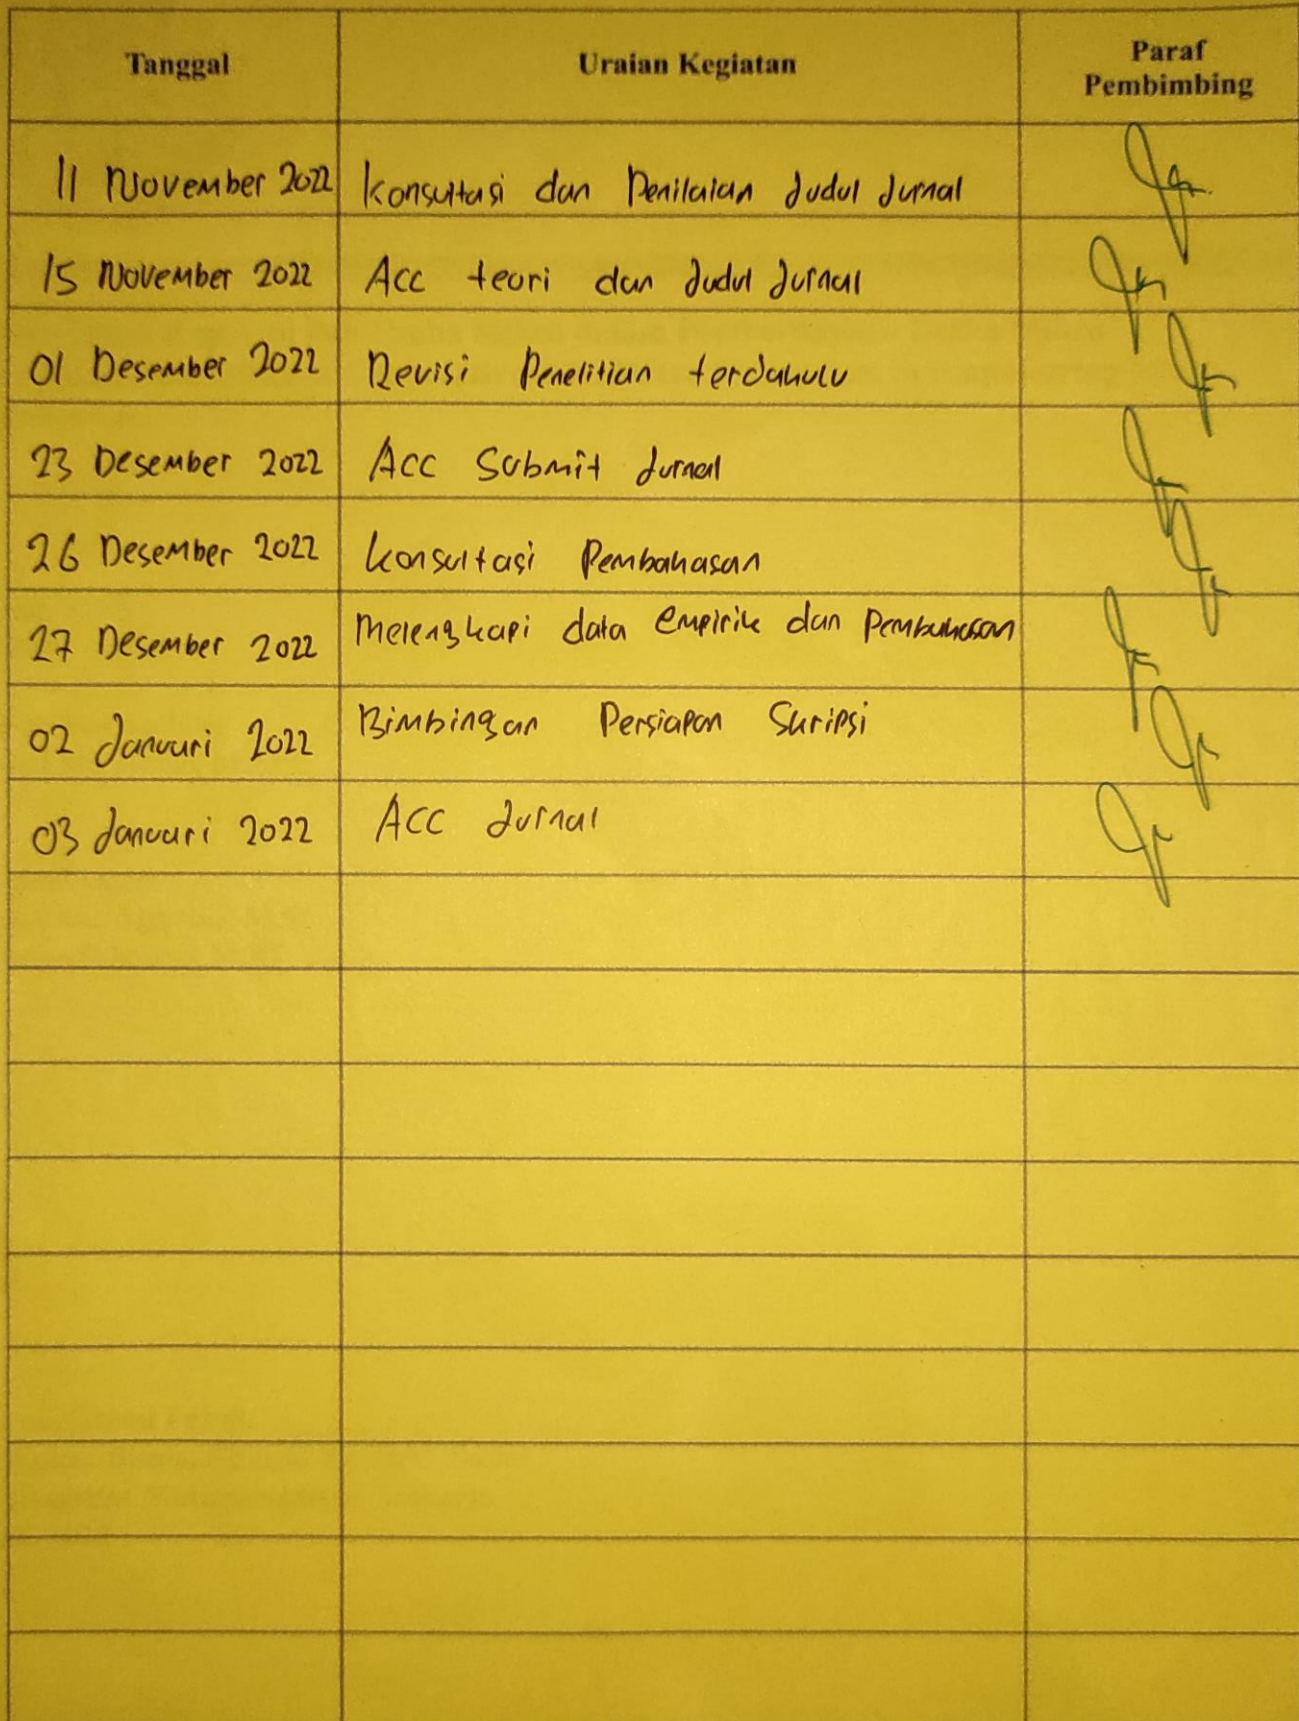 Tanggal Uraian Kegiatan Paraf Pembimbing
11 November 2022 Konsultasi dan Penilaian Judul Jurnal
15 November 2022 Acc teori dan Judul Jurnal
01 Desember 2022 Revisi Penelitian terdahulu
23 Desember 2022 Acc Submit Jurnal
26 Desember 2022 Konsultasi Pembahasan
27 Desember 2022 Melengkapi data empirik dan Pembahasan
02 Januari 2022 Bimbingan Persiapan Skripsi
03 Januari 2022 Acc Jurnal